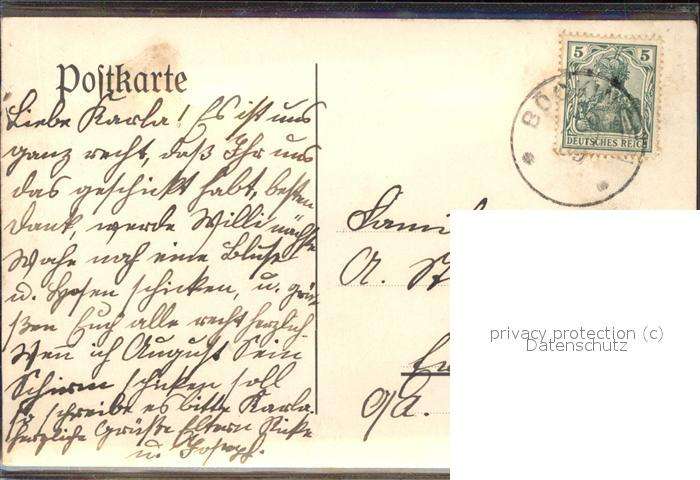 Postkarte
Liebe Karla! Es ist uns
ganz recht, daß Ihr uns
das geschickt habt, besten
Dank, werde Willi nächste
Woche noch eine Bluse
u. Hosen schicken, u. grü-
ßen Euch alle recht herzlich
Wen ich August Sein
Schirm schicken soll
so schreibe es bitte Karla.
herzliche Grüße Eltern
u. Joseph.
5 5
DEUTSCHES REICH
Famil
A. St
privacy protection (c)
Datenschutz